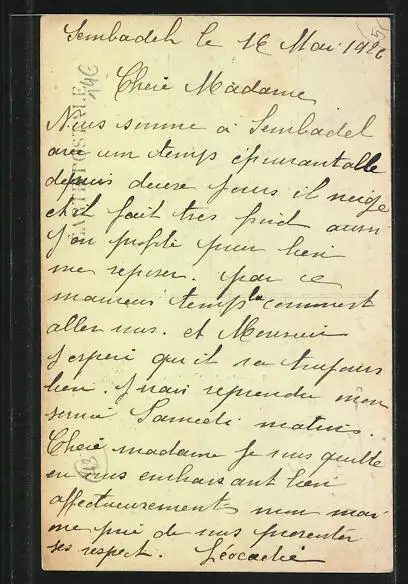 Sembadel le 16 Mai 1926
Cheie Madame
Nous somme a Sembadel
avec um temps épouvantalle
depuis deuxe jours il neige
et il fait tres froid aussi
j'en profite pour bien
me reposer. par ce
mauveui temps la comment
allez vous. et Monsieui
j'esperi qu'il va toujours
bien. J'irais reprendre mon
servici Samedi matin.
Cheie madame je vous quitte
en vous embrassant bien
affectueusements mon mai
me prie de vous presenter
ses respect. Léocadie
CARTE POSTALE
146
143
5